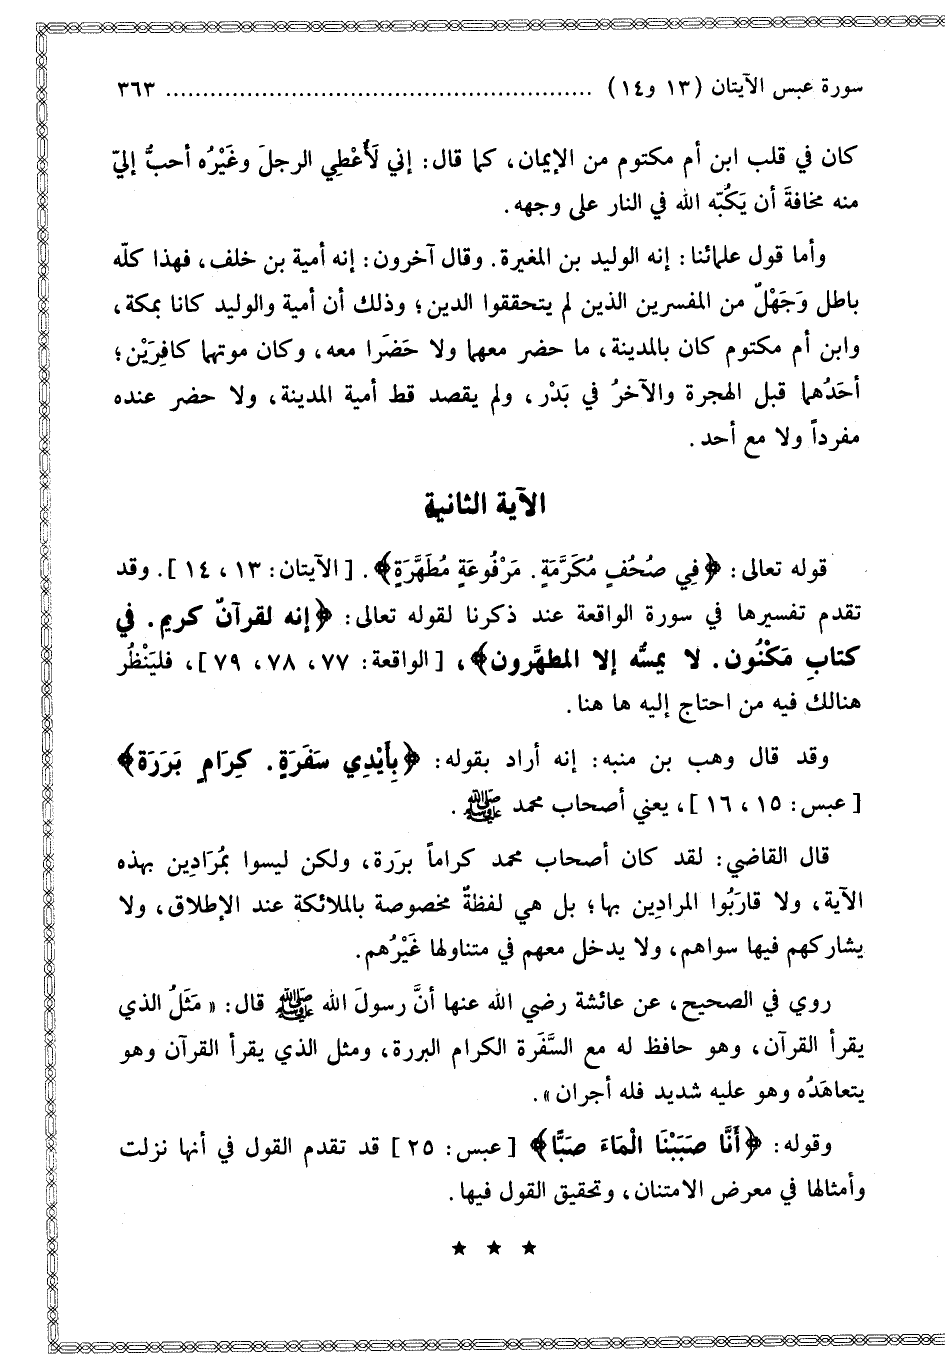 سورة عبس الآيتان (١٣ و١٤) ........................................................ ٣٦٣
كان في قلب ابن أم مكتوم من الإيمان، كما قال: إني لَأُعْطِي الرجلَ وغَيْرُه أحبُّ إليّ
منه مخافةَ أن يَكُبّه الله في النار على وجهه.
وأما قول علمائنا: إنه الوليد بن المغيرة. وقال آخرون: إنه أمية بن خلف، فهذا كلّه
باطل وَجَهْلٌ من المفسرين الذين لم يتحققوا الدين؛ وذلك أن أمية والوليد كانا بمكة،
وابن أم مكتوم كان بالمدينة، ما حضر معهما ولا حَضَرا معه، وكان موتهما كافِرَيْن؛
أحَدُهما قبل الهجرة والآخرُ في بَدْر، ولم يقصد قط أمية المدينة، ولا حضر عنده
مفرداً ولا مع أحد.
الآية الثانية
قوله تعالى: ﴿فِي صُحُفٍ مُكَرَّمَةٍ. مَرْفُوعَةٍ مُطَهَّرَةٍ﴾. [الآيتان: ١٣، ١٤]. وقد
تقدم تفسيرها في سورة الواقعة عند ذكرنا لقوله تعالى: ﴿إنه لقرآنٌ كريم. في
كتابٍ مَكْنُون. لا يمسُّه إلا المطهَّرون﴾، [الواقعة: ٧٧، ٧٨، ٧٩]، فليَنْظُر
هنالك فيه من احتاج إليه ها هنا.
وقد قال وهب بن منبه: إنه أراد بقوله: ﴿بِأَيْدِي سَفَرَةٍ. كِرَامٍ بَرَرَة﴾
[عبس: ١٥، ١٦]، يعني أصحاب محمد ﷺ.
قال القاضي: لقد كان أصحاب محمد كراماً بررة، ولكن ليسوا بمُرَادِين بهذه
الآية، ولا قارَبُوا المرادِين بها؛ بل هي لفظةٌ مخصوصة بالملائكة عند الإطلاق، ولا
يشاركهم فيها سواهم، ولا يدخل معهم في متناولها غَيْرُهم.
روي في الصحيح، عن عائشة رضي الله عنها أنَّ رسولَ الله ﷺ قال: «مَثَلُ الذي
يقرأ القرآن، وهو حافظ له مع السَّفَرة الكرام البررة، ومثل الذي يقرأ القرآن وهو
يتعاهَدُه وهو عليه شديد فله أجران».
وقوله: ﴿أَنَّا صَبَبْنَا الْمَاءَ صَبًّا﴾ [عبس: ٢٥] قد تقدم القول في أنها نزلت
وأمثالها في معرض الامتنان، وتحقيق القول فيها.
★ ★ ★